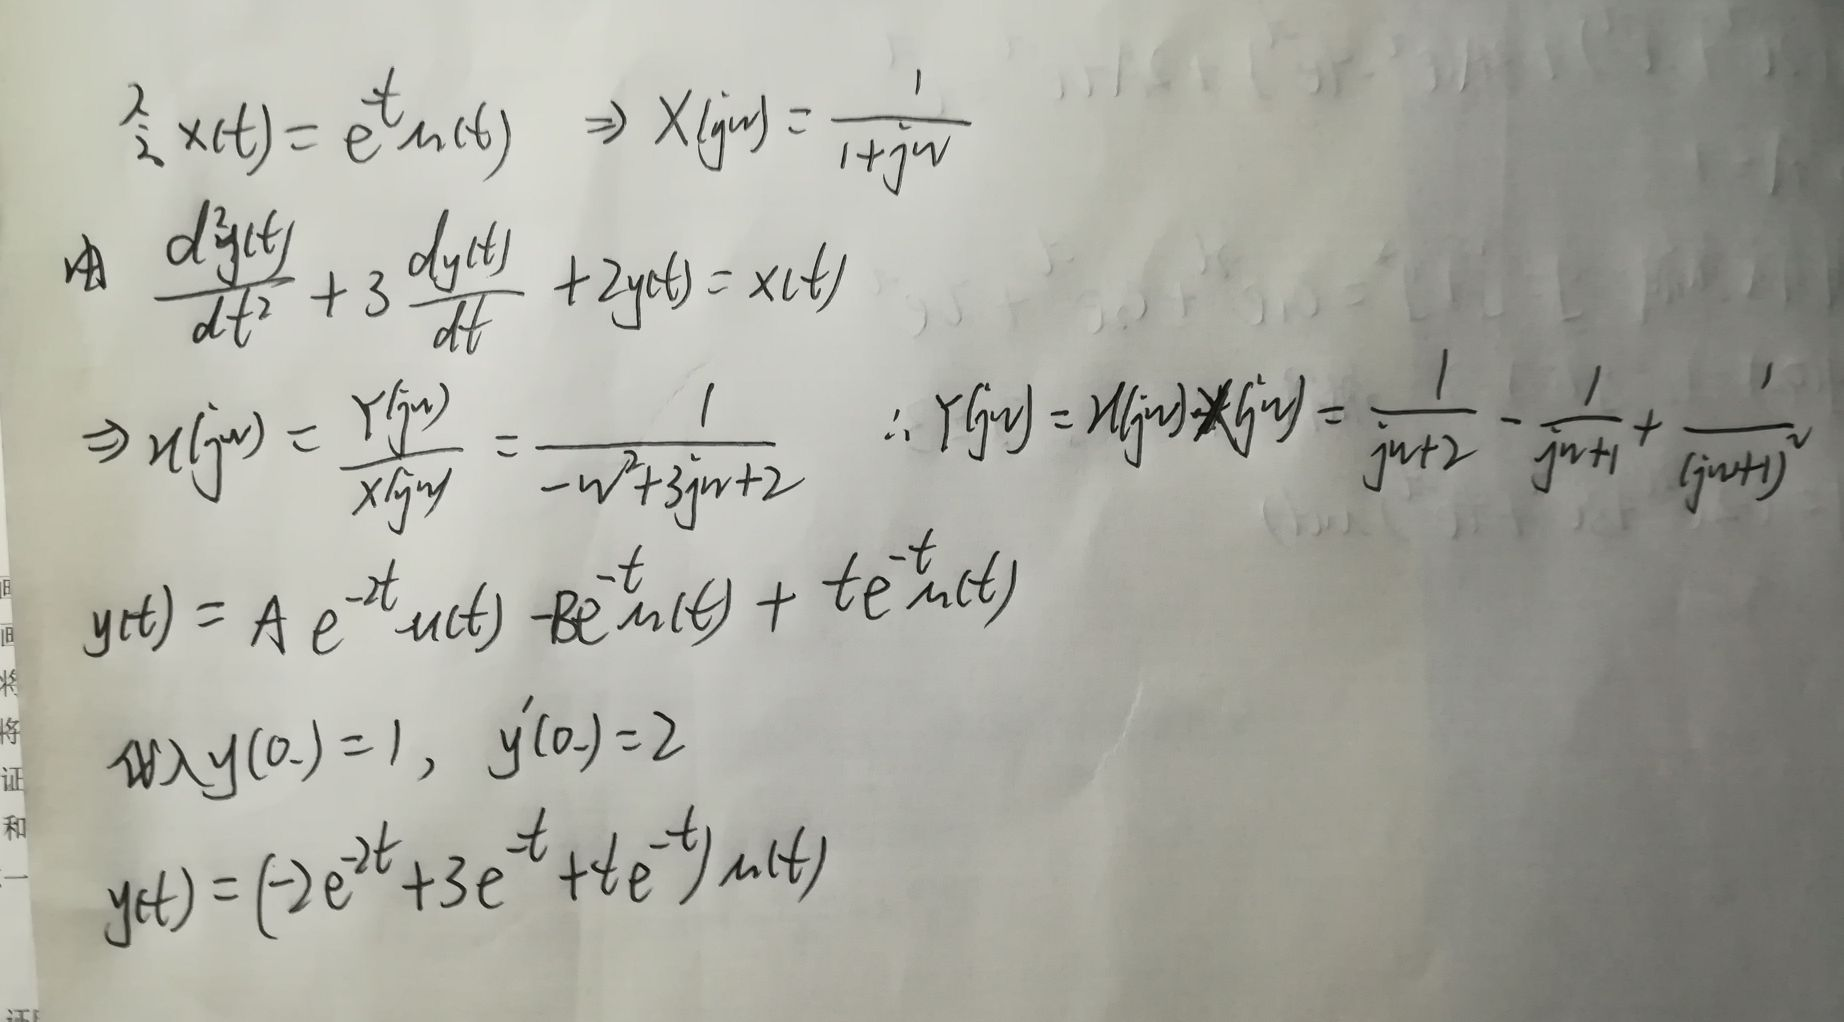 令 x(t) = e^{-t}u(t) ⇒ X(jw) = \frac{1}{1+jw}
由 \frac{d^2y(t)}{dt^2} + 3\frac{dy(t)}{dt} + 2y(t) = x(t)
⇒ H(jw) = \frac{Y(jw)}{X(jw)} = \frac{1}{-w^2+3jw+2} ∴ Y(jw) = H(jw)·X(jw) = \frac{1}{jw+2} - \frac{1}{jw+1} + \frac{1}{(jw+1)^2}
y(t) = A e^{-2t}u(t) - Be^{-t}u(t) + te^{-t}u(t)
代入 y(0-) = 1, y'(0-) = 2
y(t) = (-2e^{-2t} + 3e^{-t} + te^{-t})u(t)
画
画
将
将
证
和
一